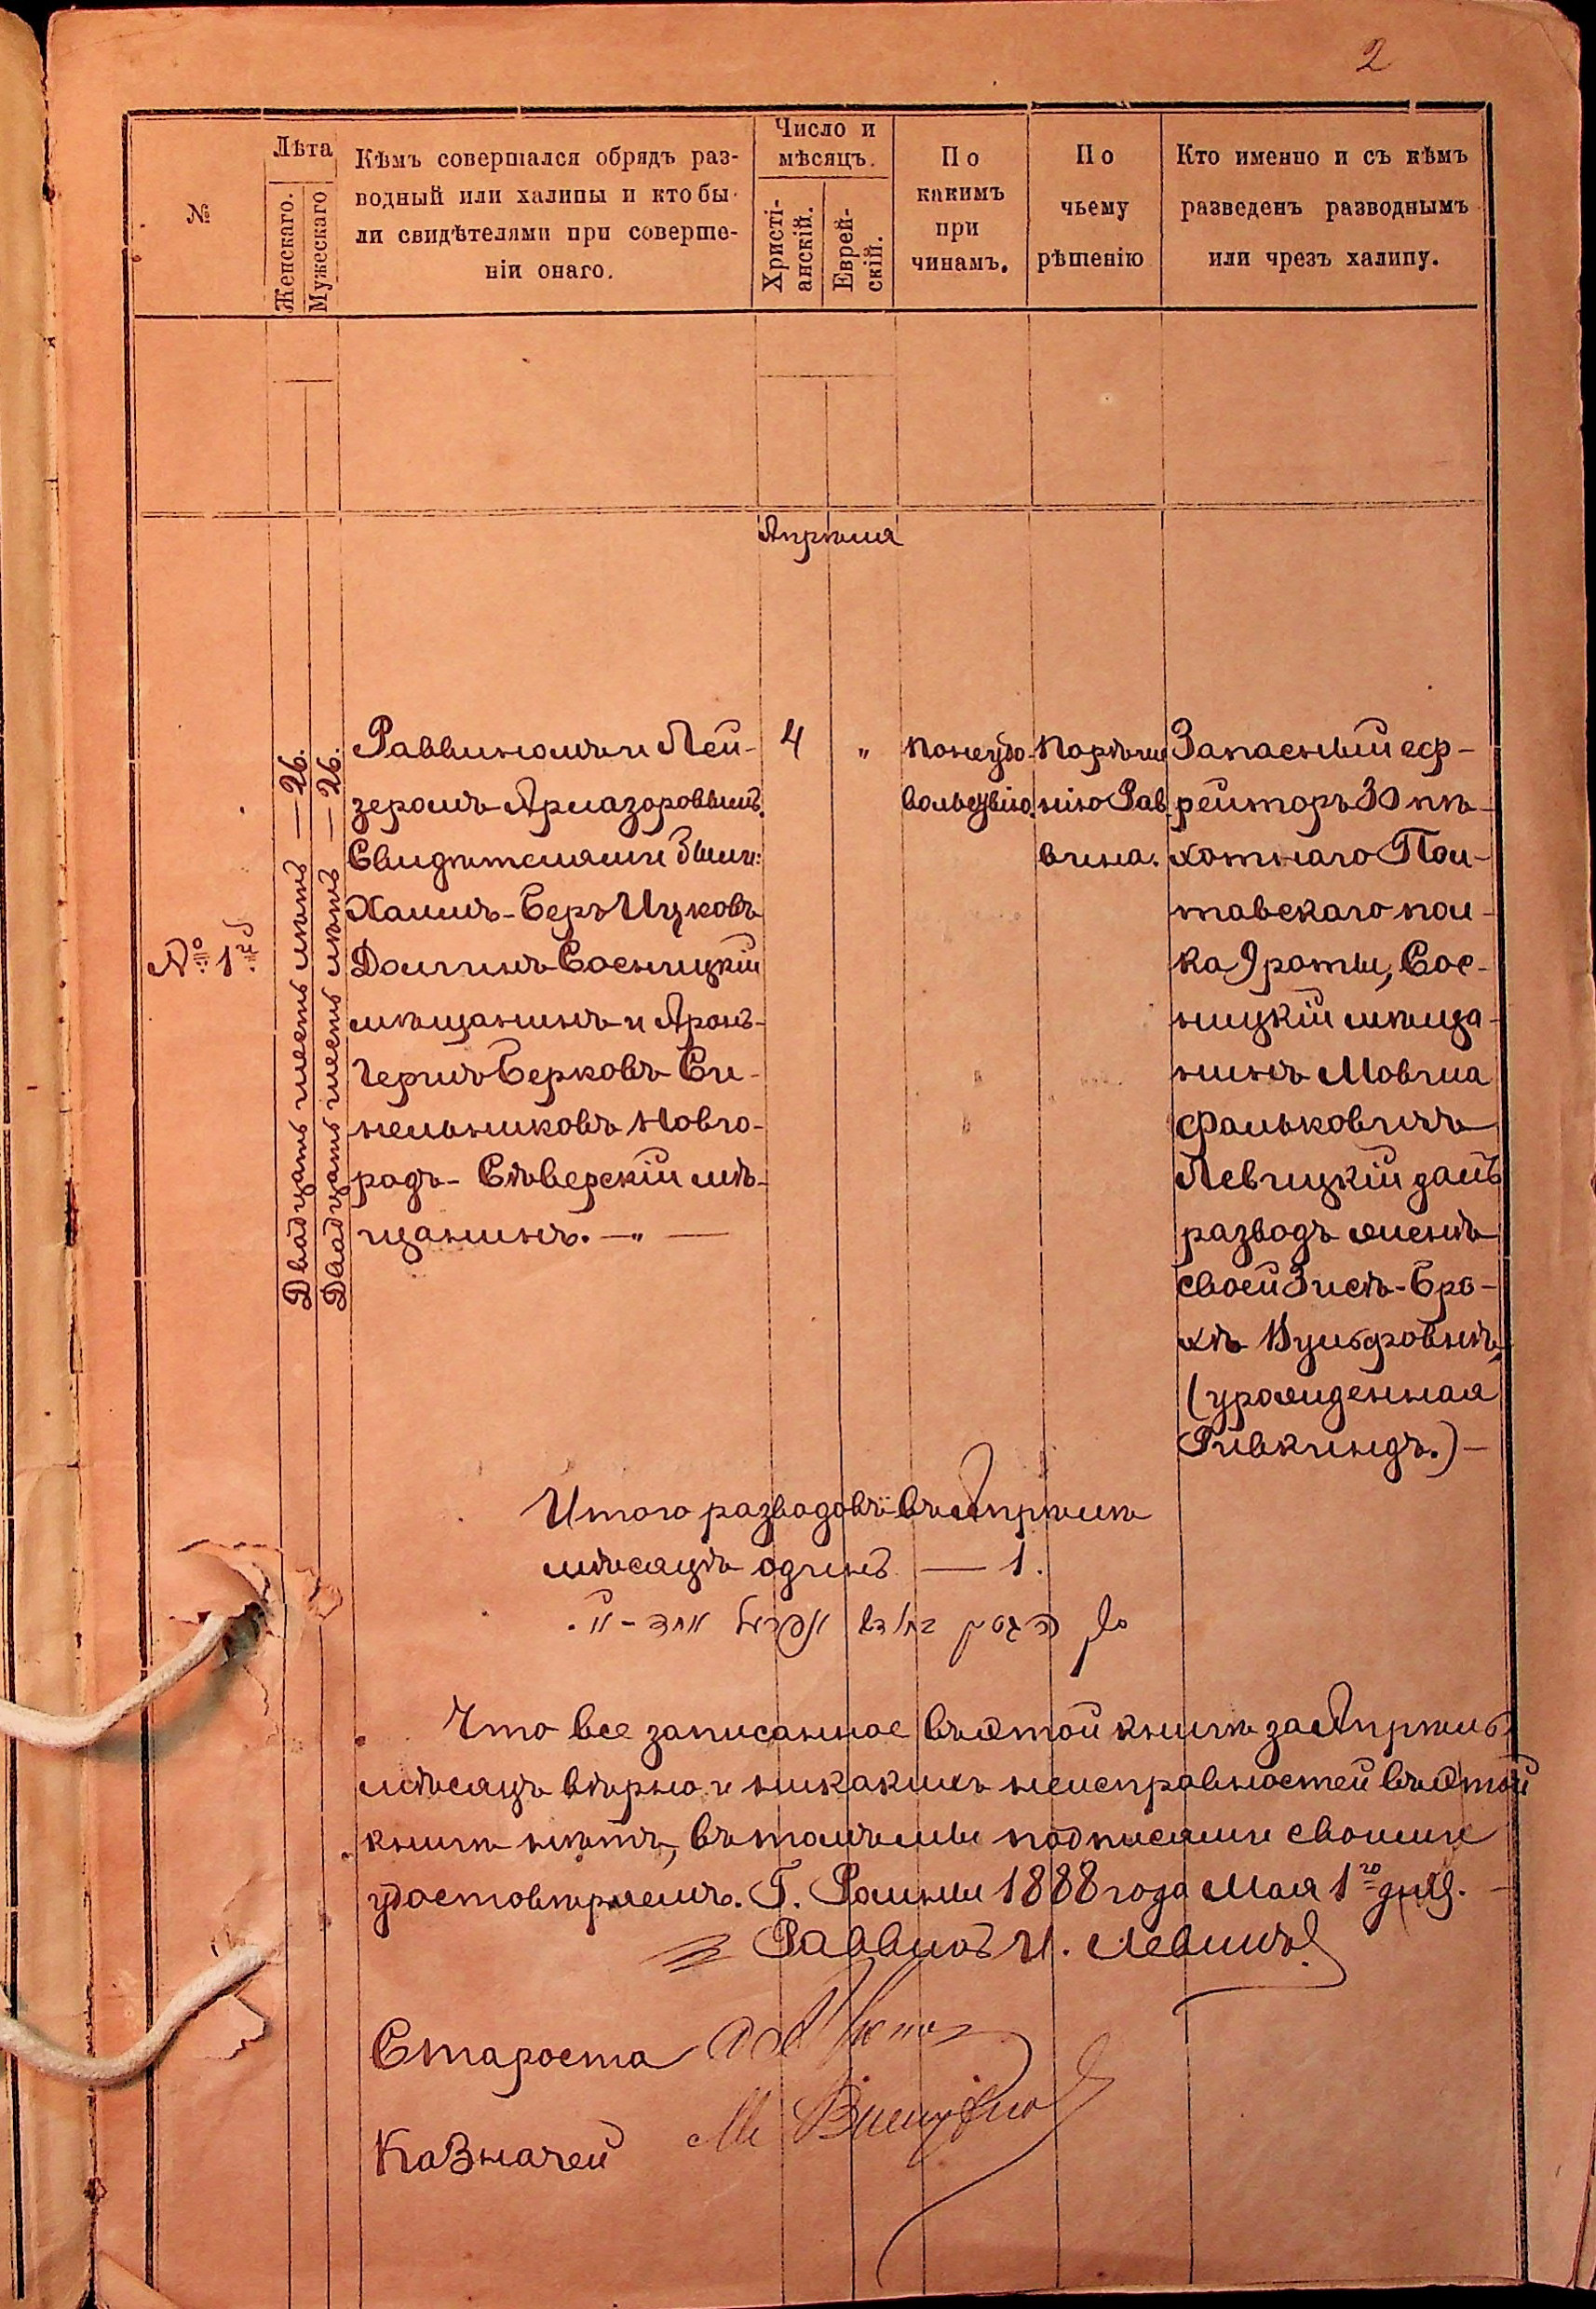 2
№
Лѣта
Женскаго.
Мужескаго
Кѣмъ совершался обрядъ раз-
водный или халипы и кто бы-
ли свидѣтелями при соверше-
ніи онаго.
Число и
мѣсяцъ.
Христі-
анскій.
Еврей-
скій.
По
какимъ
при
чинамъ.
По
чьему
рѣшенію
Кто именно и съ кѣмъ
разведенъ разводнымъ
или чрезъ халипу.
Апрѣля
№ 1й
Двадцать шесть лѣтъ — 26.
Двадцать шесть лѣтъ — 26.
Раввиномъ Лей-
зеромъ
Свидѣтелями были:
Хаимъ-Беръ Ицковъ
Долгинъ Сосницкій
мѣщанинъ и Аронъ-
Герцъ Берковъ Си-
нельниковъ Новго-
родъ-Сѣверскій мѣ-
щанинъ. —"—
4
"
По неудо-
вольствію.
По рѣше
нію Рав
вина.
Запасный еф-
рейторъ 30 пѣ-
хотнаго Пол-
тавскаго пол-
ка 9 роты, Сос-
ницкій мѣща-
нинъ Мовша
Фальковичъ
Левицкій далъ
разводъ женѣ
своей Зисѣ-Бро-
хѣ Вульфовнѣ
(урожденная
Ривкиндъ.) —
Итого разводовъ въ Апрѣлѣ
мѣсяцѣ одинъ — 1.
Что все записанное въ этой книгѣ за Апрѣль
мѣсяцъ вѣрно и никакихъ неисправностей въ этой
книгѣ нѣтъ, въ томъ мы подписями своими
удостовѣряемъ. Г. Ромны 1888 года Мая 1го дня.
Раввинъ И. Левинъ
Староста
Казначей